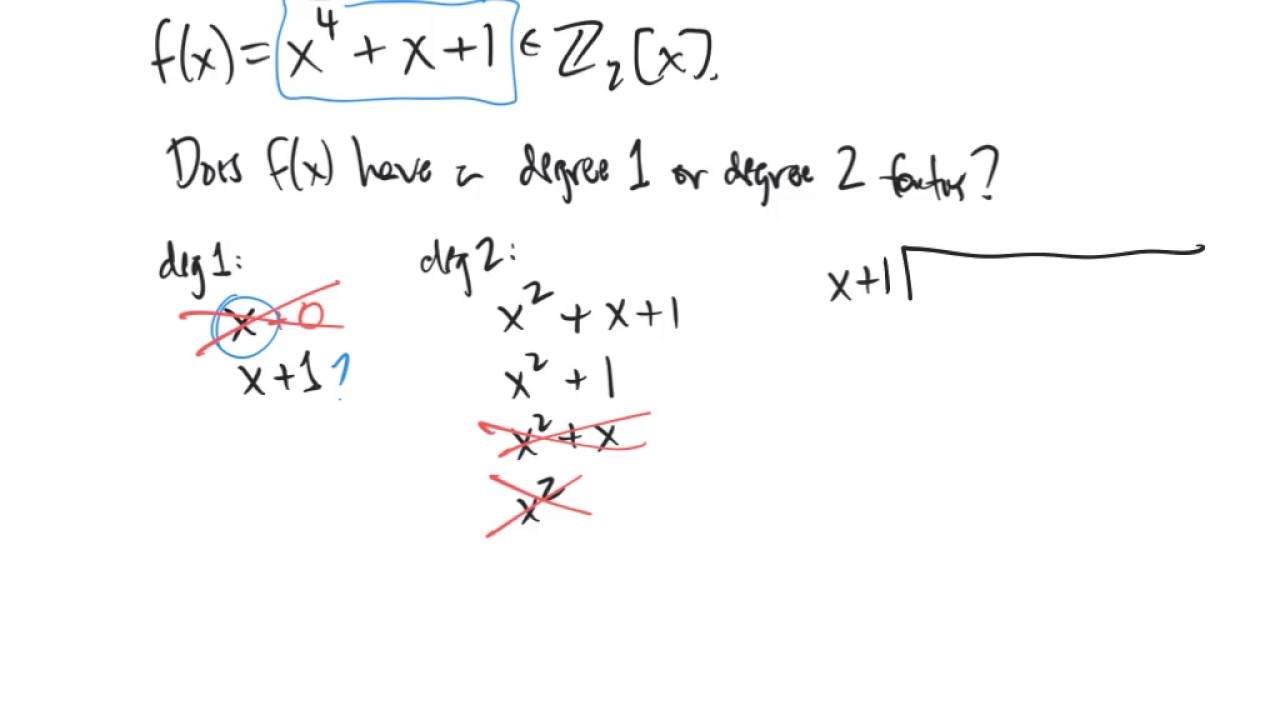 f(x) = x⁴ + x + 1 ∈ ℤ₂[x].
Does f(x) have a degree 1 or degree 2 factor?
deg 1:
x + 0
x + 1 ?
deg 2:
x² + x + 1
x² + 1
x² + x
x²
x + 1